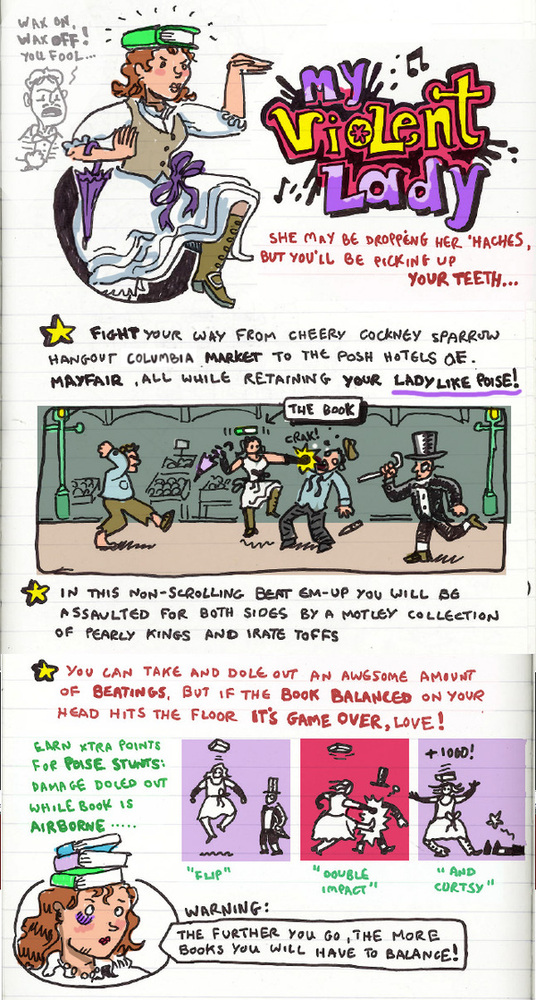 WAX ON,
WAX OFF!
YOU FOOL...
MY
VIOLENT
LADY
SHE MAY BE DROPPING HER 'HACHES,
BUT YOU'LL BE PICKING UP
YOUR TEETH...
FIGHT YOUR WAY FROM CHEERY COCKNEY SPARROW
HANGOUT COLUMBIA MARKET TO THE POSH HOTELS OF.
MAYFAIR, ALL WHILE RETAINING YOUR LADYLIKE POISE!
THE BOOK
CRAK!
IN THIS NON-SCROLLING BEAT EM-UP YOU WILL BE
ASSAULTED FOR BOTH SIDES BY A MOTLEY COLLECTION
OF PEARLY KINGS AND IRATE TOFFS
YOU CAN TAKE AND DOLE OUT AN AWESOME AMOUNT
OF BEATINGS, BUT IF THE BOOK BALANCED ON YOUR
HEAD HITS THE FLOOR IT'S GAME OVER, LOVE!
EARN XTRA POINTS
FOR POISE STUNTS:
DAMAGE DOLED OUT
WHILE BOOK IS
AIRBORNE.....
+1000!
"FLIP"
"DOUBLE
IMPACT"
"AND
CURTSY"
WARNING:
THE FURTHER YOU GO, THE MORE
BOOKS YOU WILL HAVE TO BALANCE!